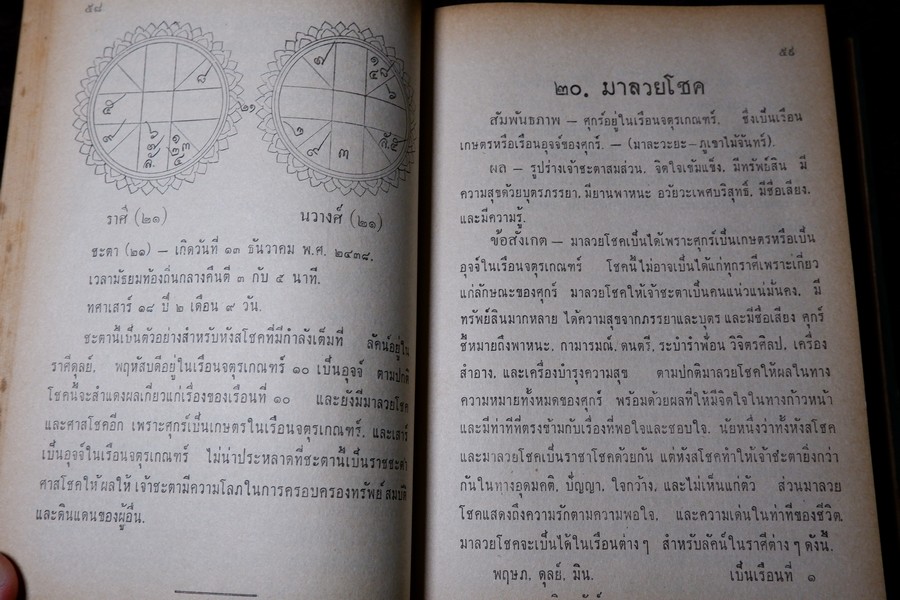 ๕๘
๒๑
ราศี (๒๑) นวางศ์ (๒๑)
ชะตา (๒๑) — เกิดวันที่ ๑๓ ธันวาคม พ.ศ. ๒๔๓๘.
เวลามัธยมท้องถิ่นกลางคืนตี ๓ กับ ๕ นาที.
ทศาเสาร์ ๑๘ ปี ๒ เดือน ๙ วัน.
ชะตานี้เป็นตัวอย่างสำหรับหังสโชคที่มีกำลังเต็มที่ ลัคน์อยู่ใน
ราศีตุลย์. พฤหัสบดีอยู่ในเรือนจตุรเกณฑร์ ๑๐ เป็นอุจจ์ ตามปกติ
โชคนี้จะสำแดงผลเกี่ยวแก่เรื่องของเรือนที่ ๑๐ และยังมีมาลวยโชค
และศาสโชคอีก เพราะศุกร์เป็นเกษตรในเรือนจตุรเกณฑร์. และเสาร์
เป็นอุจจ์ในเรือนจตุรเกณฑร์ ไม่น่าประหลาดที่ชะตานี้เป็นราชชะตา
ศาสโชคให้ผลให้ เจ้าชะตามีความโลภในการครอบครองทรัพย์ สมบัติ
และดินแดนของผู้อื่น.
๕๙
๒๐. มาลวยโชค
สัมพันธภาพ — ศุกร์อยู่ในเรือนจตุรเกณฑร์. ซึ่งเป็นเรือน
เกษตรหรือเรือนอุจจ์ของศุกร์. — (มาละวะยะ–ภูเขาไม้จันทร์).
ผล — รูปร่างเจ้าชะตาสมส่วน. จิตใจเข้มแข็ง. มีทรัพย์สิน มี
ความสุขด้วยบุตรภรรยา. มียานพาหนะ อวัยวะเพศบริสุทธิ์. มีชื่อเสียง.
และมีความรู้.
ข้อสังเกต — มาลวยโชคเป็นได้เพราะศุกร์เป็นเกษตรหรือเป็น
อุจจ์ในเรือนจตุรเกณฑร์ โชคนี้ไม่อาจเป็นได้แก่ทุกราศีเพราะเกี่ยว
แก่ลักษณะของศุกร์ มาลวยโชคให้เจ้าชะตาเป็นคนแน่วแน่มั่นคง. มี
ทรัพย์สินมากหลาย ได้ความสุขจากภรรยาและบุตร และมีชื่อเสียง ศุกร์
ชี้หมายถึงพาหนะ. กามารมณ์. ดนตรี. ระบำรำฟ้อน วิจิตรศิลป. เครื่อง
สำอาง. และเครื่องบำรุงความสุข ตามปกติมาลวยโชคให้ผลในทาง
ความหมายทั้งหมดของศุกร์ พร้อมด้วยผลที่ให้มีจิตใจในทางก้าวหน้า
และมีท่าทีที่ตรงข้ามกับเรื่องที่พอใจและชอบใจ. นัยหนึ่งว่าทั้งหังสโชค
และมาลวยโชคเป็นราชาโชคด้วยกัน แต่หังสโชคทำให้เจ้าชะตายิ่งกว่า
กันในทางอุดมคติ. ปัญญา. ใจกว้าง. และไม่เห็นแก่ตัว ส่วนมาลวย
โชคแสดงถึงความรักตามความพอใจ. และความเด่นในท่าทีของชีวิต.
มาลวยโชคจะเป็นได้ในเรือนต่าง ๆ สำหรับลัคน์ในราศีต่าง ๆ ดังนี้.
พฤษภ. ตุลย์. มีน. เป็นเรือนที่ ๑